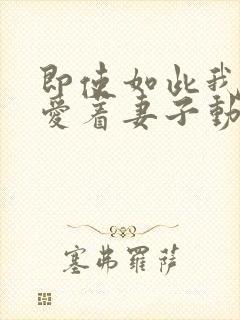 即使如此我
愛着妻子動
塞弗羅薩